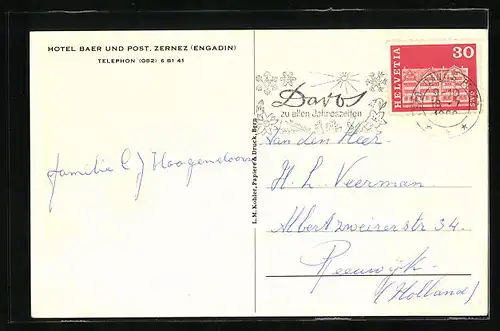 HOTEL BAER UND POST, ZERNEZ (ENGADIN)
TELEPHON (082) 6 81 41
HELVETIA 30
Davos
zu allen Jahreszeiten
familie C J Hoogendoorn
L.M. Kohler, Papiere & Druck, Bern
Van den Heer
H. L. Veerman.
Albert zweirerstr 34.
Reeuwijk.
(Holland)